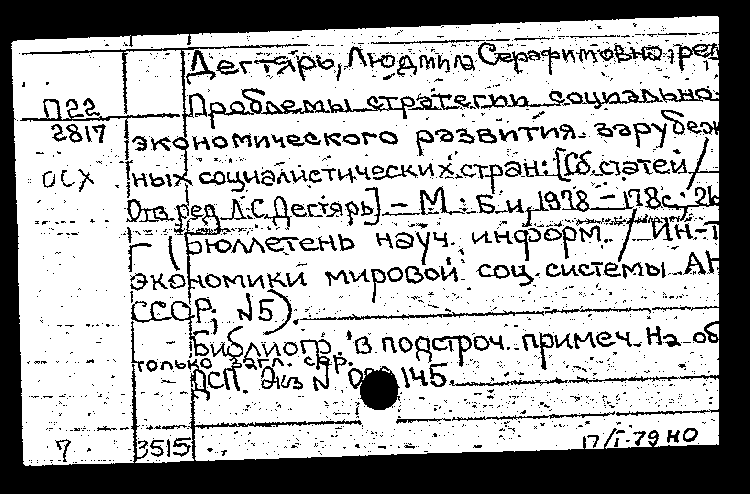 Дегтярь, Людмила Серафимовна, ред
П22
Проблемы стратегии социально-
2817
экономического развития зарубеж
ных социалистических стран: [Сб. статей /
ОСХ
Отв. ред. Л.С. Дегтярь] – М.: Б. и, 1978 – 178с.;
– (Бюллетень науч. информ. / Ин-т
экономики мировой соц. системы АН
СССР; №5).
Библиогр. в подстроч. примеч. На об
только загл. сер.
ДСП. Экз №145.
7 3515 17/I-79 НО